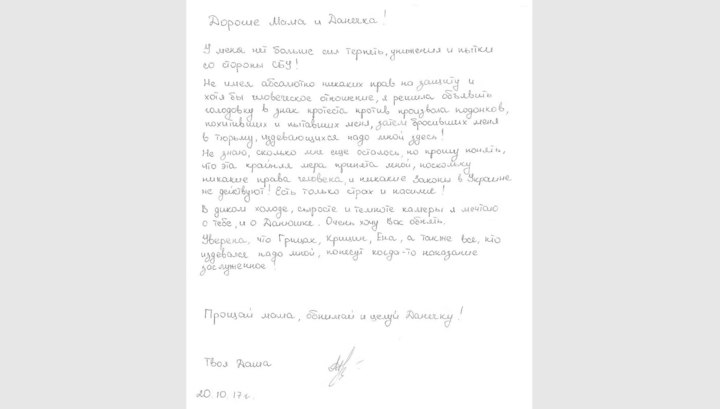 Дорогие Мама и Данечка!
У меня нет больше сил терпеть, унижения и пытки
со стороны СБУ!
Не имея абсолютно никаких прав на защиту и
хотя бы человеческое отношение, я решила объявить
голодовку в знак протеста против произвола подонков,
похитивших и пытавших меня, затем бросивших меня
в тюрьму, издевающихся надо мной здесь!
Не знаю, сколько мне еще осталось, но прошу понять,
что эта крайняя мера принята мной, поскольку
никакие права человека, и никакие Законы в Украине
не действуют! Есть только страх и насилие!
В диком холоде, сырости и темноте камеры я мечтаю
о тебе, и о Данюшке. Очень хочу Вас обнять.
Уверена, что Грицак, Кришин, Ена, а также все, кто
издевался надо мной, понесут когда-то наказание
заслуженное!
Прощай мама, обнимай и целуй Данечку!
Твоя Даша
20.10.17г.